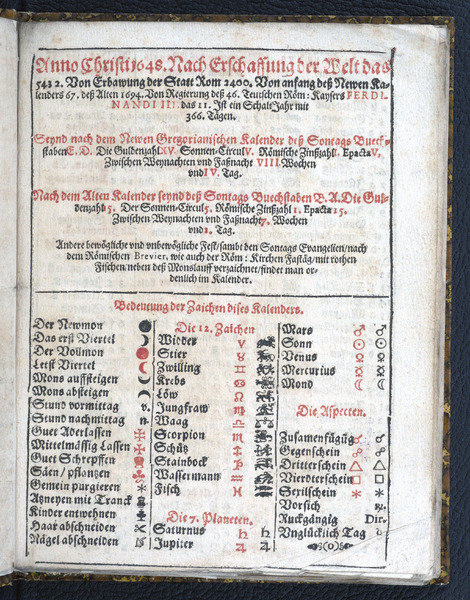 Anno Christi 1648. Nach Erschaffung der Welt das
5432. Von Erbawung der Statt Rom 2400. Von anfang deß Newen Ka-
lenders 67. deß Alten 1694. Von Regierung deß 46. Teutschen Röm: Kaysers FERDI-
NANDI III. das 11. Ist ein SchaltJahr mit
366. Tägen.
Seynd nach dem Newen Gregorianischen Kalender deß Sontags Buech-
staben E. D. Die Guldenzahl XV. Sonnen-Circul V. Römische Zinßzahl I. Epacta V.
Zwischen Weynachten vnd Faßnacht VIII. Wochen
vnd IV. Tag.
Nach dem Alten Kalender seynd deß Sontags Buechstaben B. A. Die Gul-
denzahl 5. Der Sonnen-Circul 5. Römische Zinßzahl 1. Epacta 15.
Zwischen Weynachten vnd Faßnacht 7. Wochen
vnd 1. Tag.
Andere bewögliche vnd vnbewögliche Fest / sambt den Sontags Evangelien / nach
dem Römischen Brevier, wie auch der Röm: Kirchen Fastäg / mit rothen
Fischen / neben deß Monslauff verzaichnet / findet man or-
denlich im Kalender.
Bedeutung der Zaichen dises Kalenders.
Der Newmon
Das erst Viertel
Der Vollmon
Letst Viertel
Mons auffsteigen
Mons absteigen
Stund vormittag v.
Stund nachmittag n.
Guet Aderlassen
Mittelmässig Lassen
Guet Schrepffen
Säen / pflantzen
Gemein purgieren
Artzneyen mit Tranck
Kinder entwehnen
Haar abschneiden
Nägel abschneiden
Die 12. Zaichen
Wider ♈
Stier ♉
Zwilling ♊
Krebs ♋
Löw ♌
Jungfraw ♍
Waag ♎
Scorpion ♏
Schütz ♐
Stainbock ♑
Wassermann ♒
Fisch ♓
Die 7. Planeten.
Saturnus ♄ ♄
Jupiter ♃ ♃
Mars ♂ ♂
Sonn ☉ ☉
Venus ♀ ♀
Mercurius ☿ ☿
Mond ☾ ☾
Die Aspecten.
Zusamenfügüg ☌ ☌
Gegenschein ☍ ☍
Dritterschein △ △
Vierdterschein □ □
Sextilschein ✶ ✶
Vorsich
Ruckgängig Dir.
Vnglücklich Tag
(o)